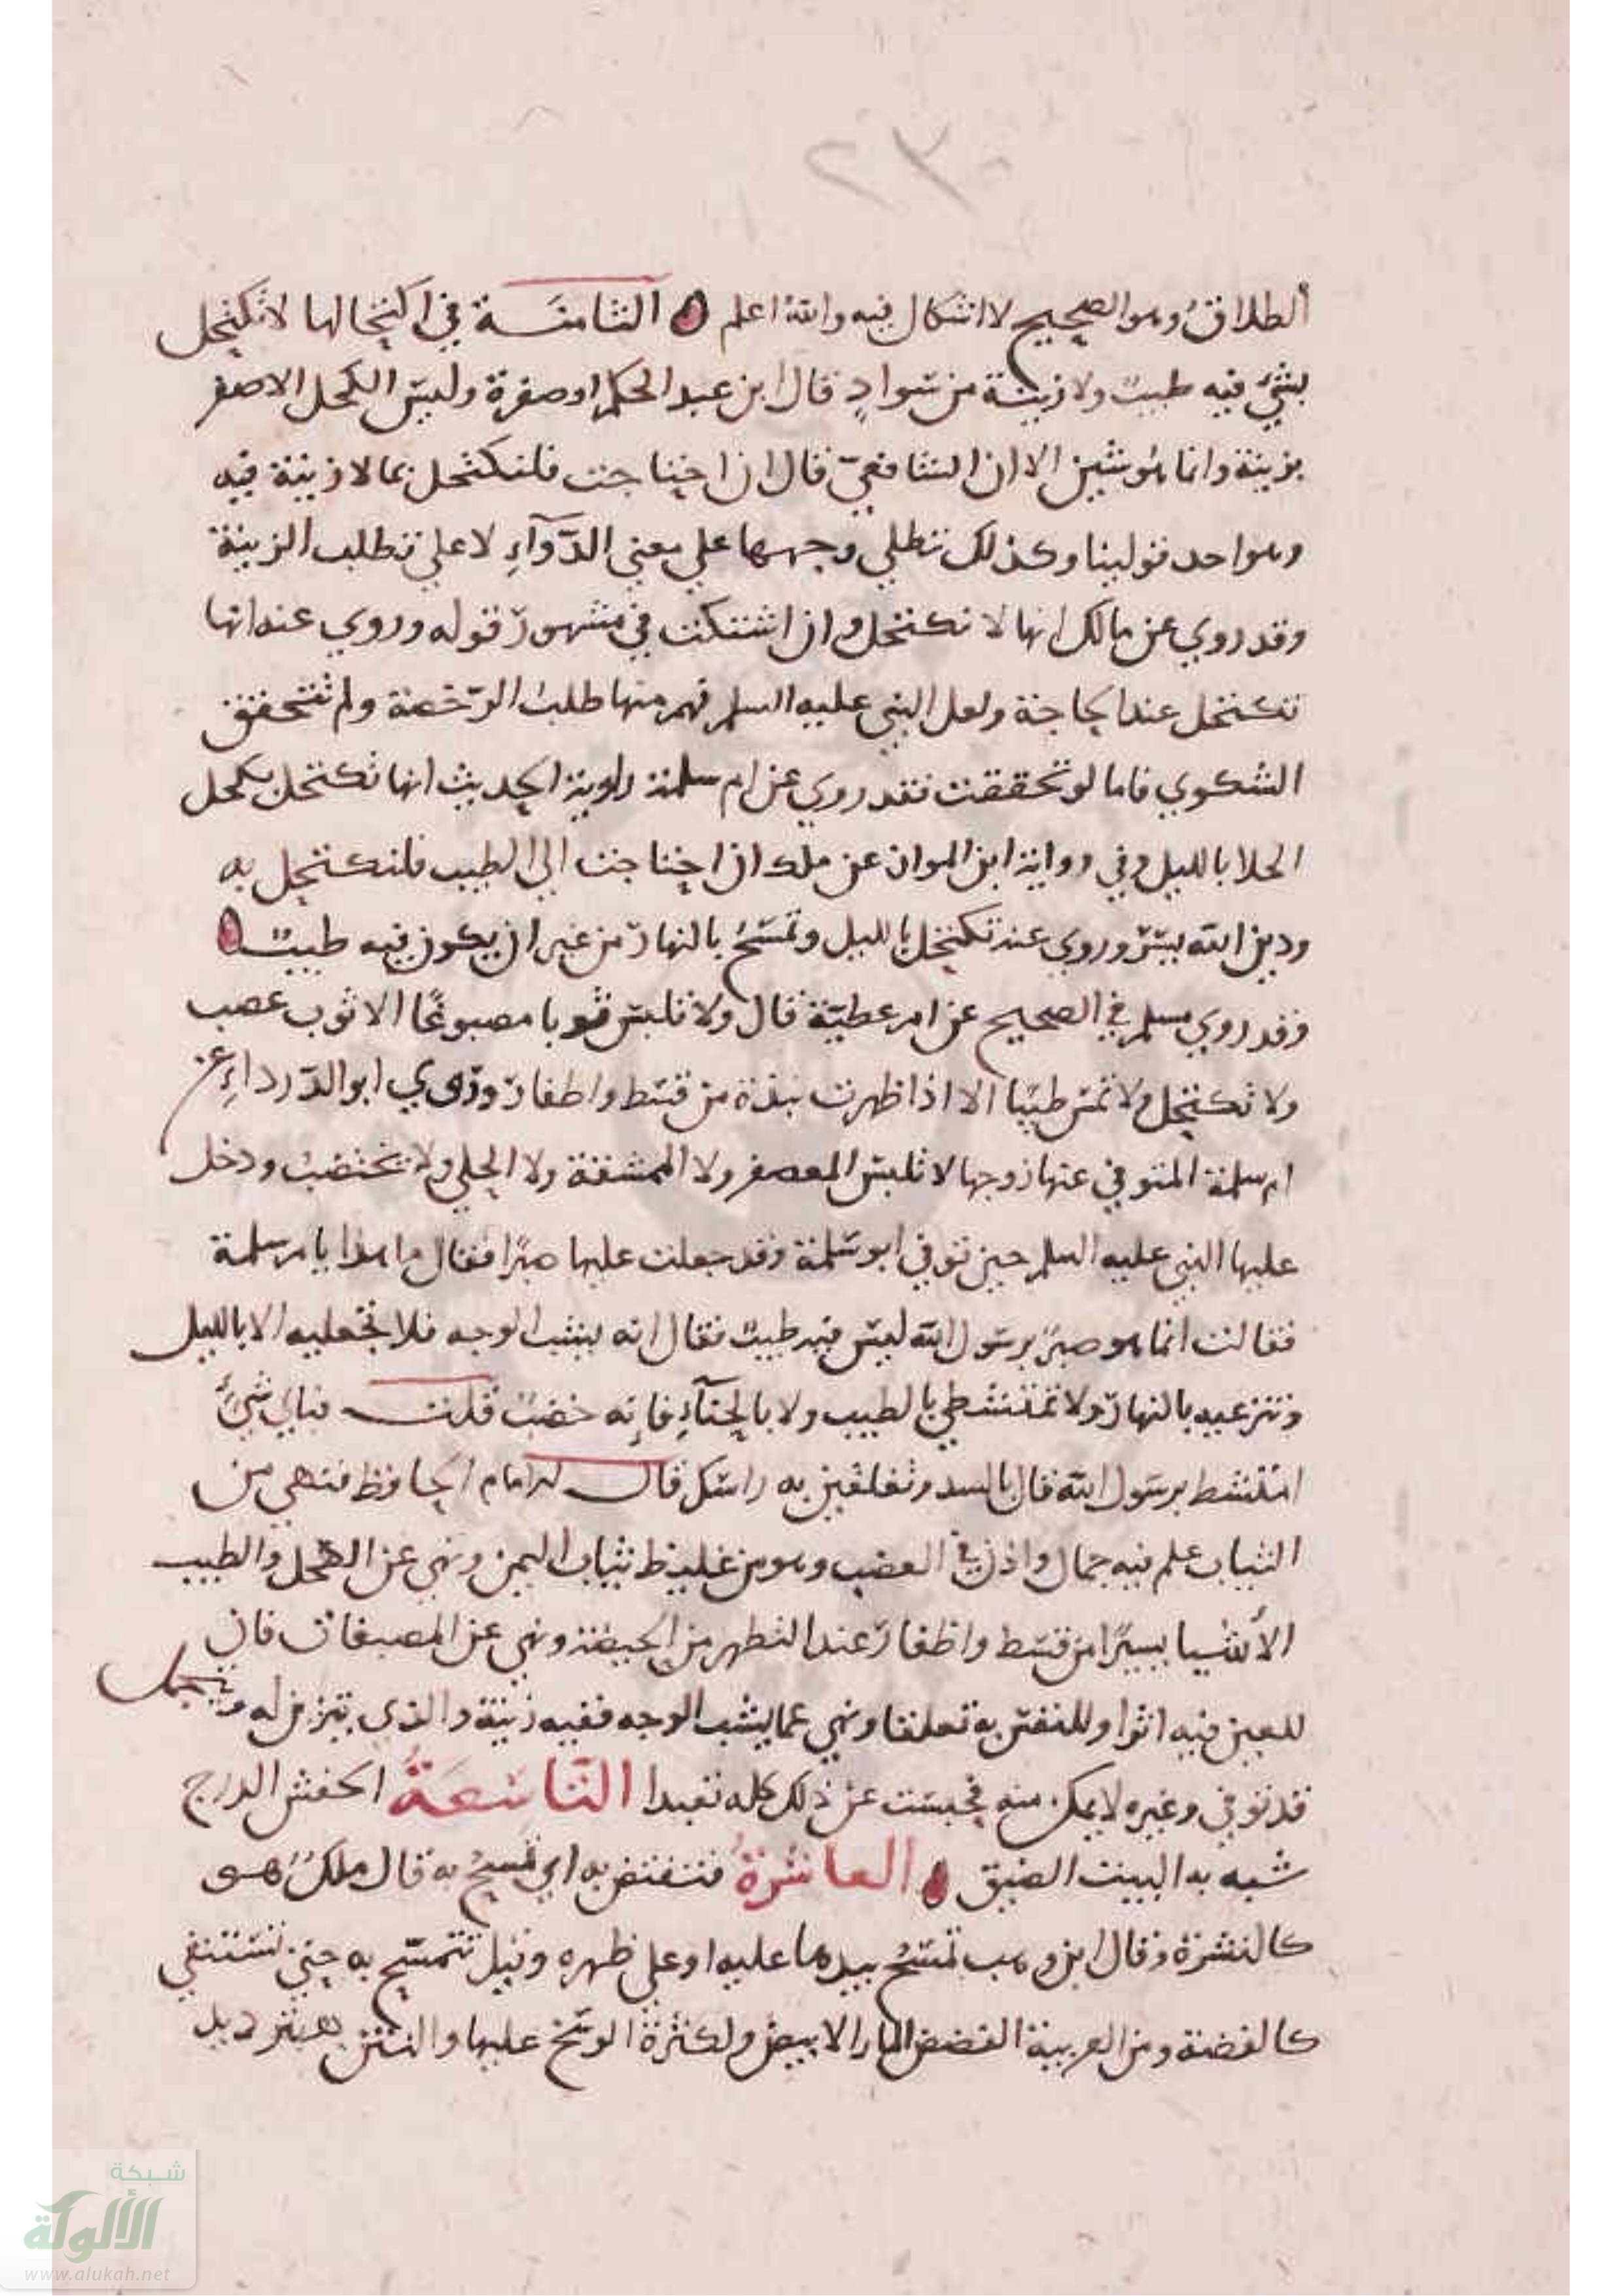 ٢٣٠
ألطلاق وهو الصحيح لا اشكال فيه والله اعلم الثامنة في اكتحالها لا تكتحل
بشيء فيه طيب ولا زينة من سواد قال ابن عبد الحكم او صفرة وليس الكحل الاصفر
بزينة وانما هو شين الا ان الشافعي قال ان احتاجت فلتكتحل بما لا زينة فيه
وهو احد قولينا وكذلك تطلي وجهها علي معني الدوآء لا علي تطلب الزينة
وقد روي عن مالك انها لا تكتحل وان اشتكت في مشهور قوله وروي عنه انها
تكتحل عند الحاجة ولعل النبي عليه السلم فهم منها طلب الرخصة ولم تتحقق
الشكوي فاما لو تحققت فقد روي عن ام سلمة راوية الحديث انها تكتحل بكحل
الجلا بالليل وفي رواية ابن المواز عن ملك ان احتاجت الي الطيب فلتكتحل به
ودين الله يسر وروي عنه تكتحل بالليل وتمسح بالنهار من غير ان يكون فيه طيب
وقد روي مسلم في الصحيح عن ام عطية قال ولا تلبس ثوبا مصبوغا الا ثوب عصب
ولا تكتحل ولا تمس طيبا الا اذا طهرت نبذة من قسط واظفار وروي ابو الدرداء عن
ام سلمة المتوفي عنها زوجها لا تلبس المعصفر ولا الممشقة ولا الحلي ولا تختضب ودخل
عليها النبي عليه السلم حين توفي ابو سلمة وقد جعلت عليها صبرا فقال ما هذا يا ام سلمة
فقالت انما هو صبر يرسول الله ليس فيه طيب فقال انه يشب الوجه فلا تجعليه الا بالليل
وتنزعيه بالنهار ولا تمتشطي بالطيب ولا بالحنآء فإنه خضب قلت فباي شيء
امتشط يرسول الله قال بالسدر وتغلفين به راسك قال الامام الحافظ فنهي من
الثياب علم فيه جمال واذن في العصب وهو من غليظ ثياب اليمن ونهي عن الكحل والطيب
الأشيا يسيرا من قسط واظفار عند التطهر من الحيضة ونهي عن المصبغات فان
للعين فيه اثرا وللنفس به تعلقا ونهي عما يشب الوجه ففيه زينة والذي يتزين له ويتجمل
قد توفي وغيره لا يمكن منه فحبست عن ذلك كله تعبدا التاسعة الحفش الدرج
شبه به البيت الضيق العاشرة فتفتض به اي تمسح به قال ملك هي
كالنشرة وقال ابن وهب تمسح بيدها عليه او علي ظهره وقيل تتمسح به حتي تستنقي
كالفضة ومن العربية الفضض المار الابيض ولكثرة الوسخ عليها والنتن
شبكة
الألوكة
www.alukah.net